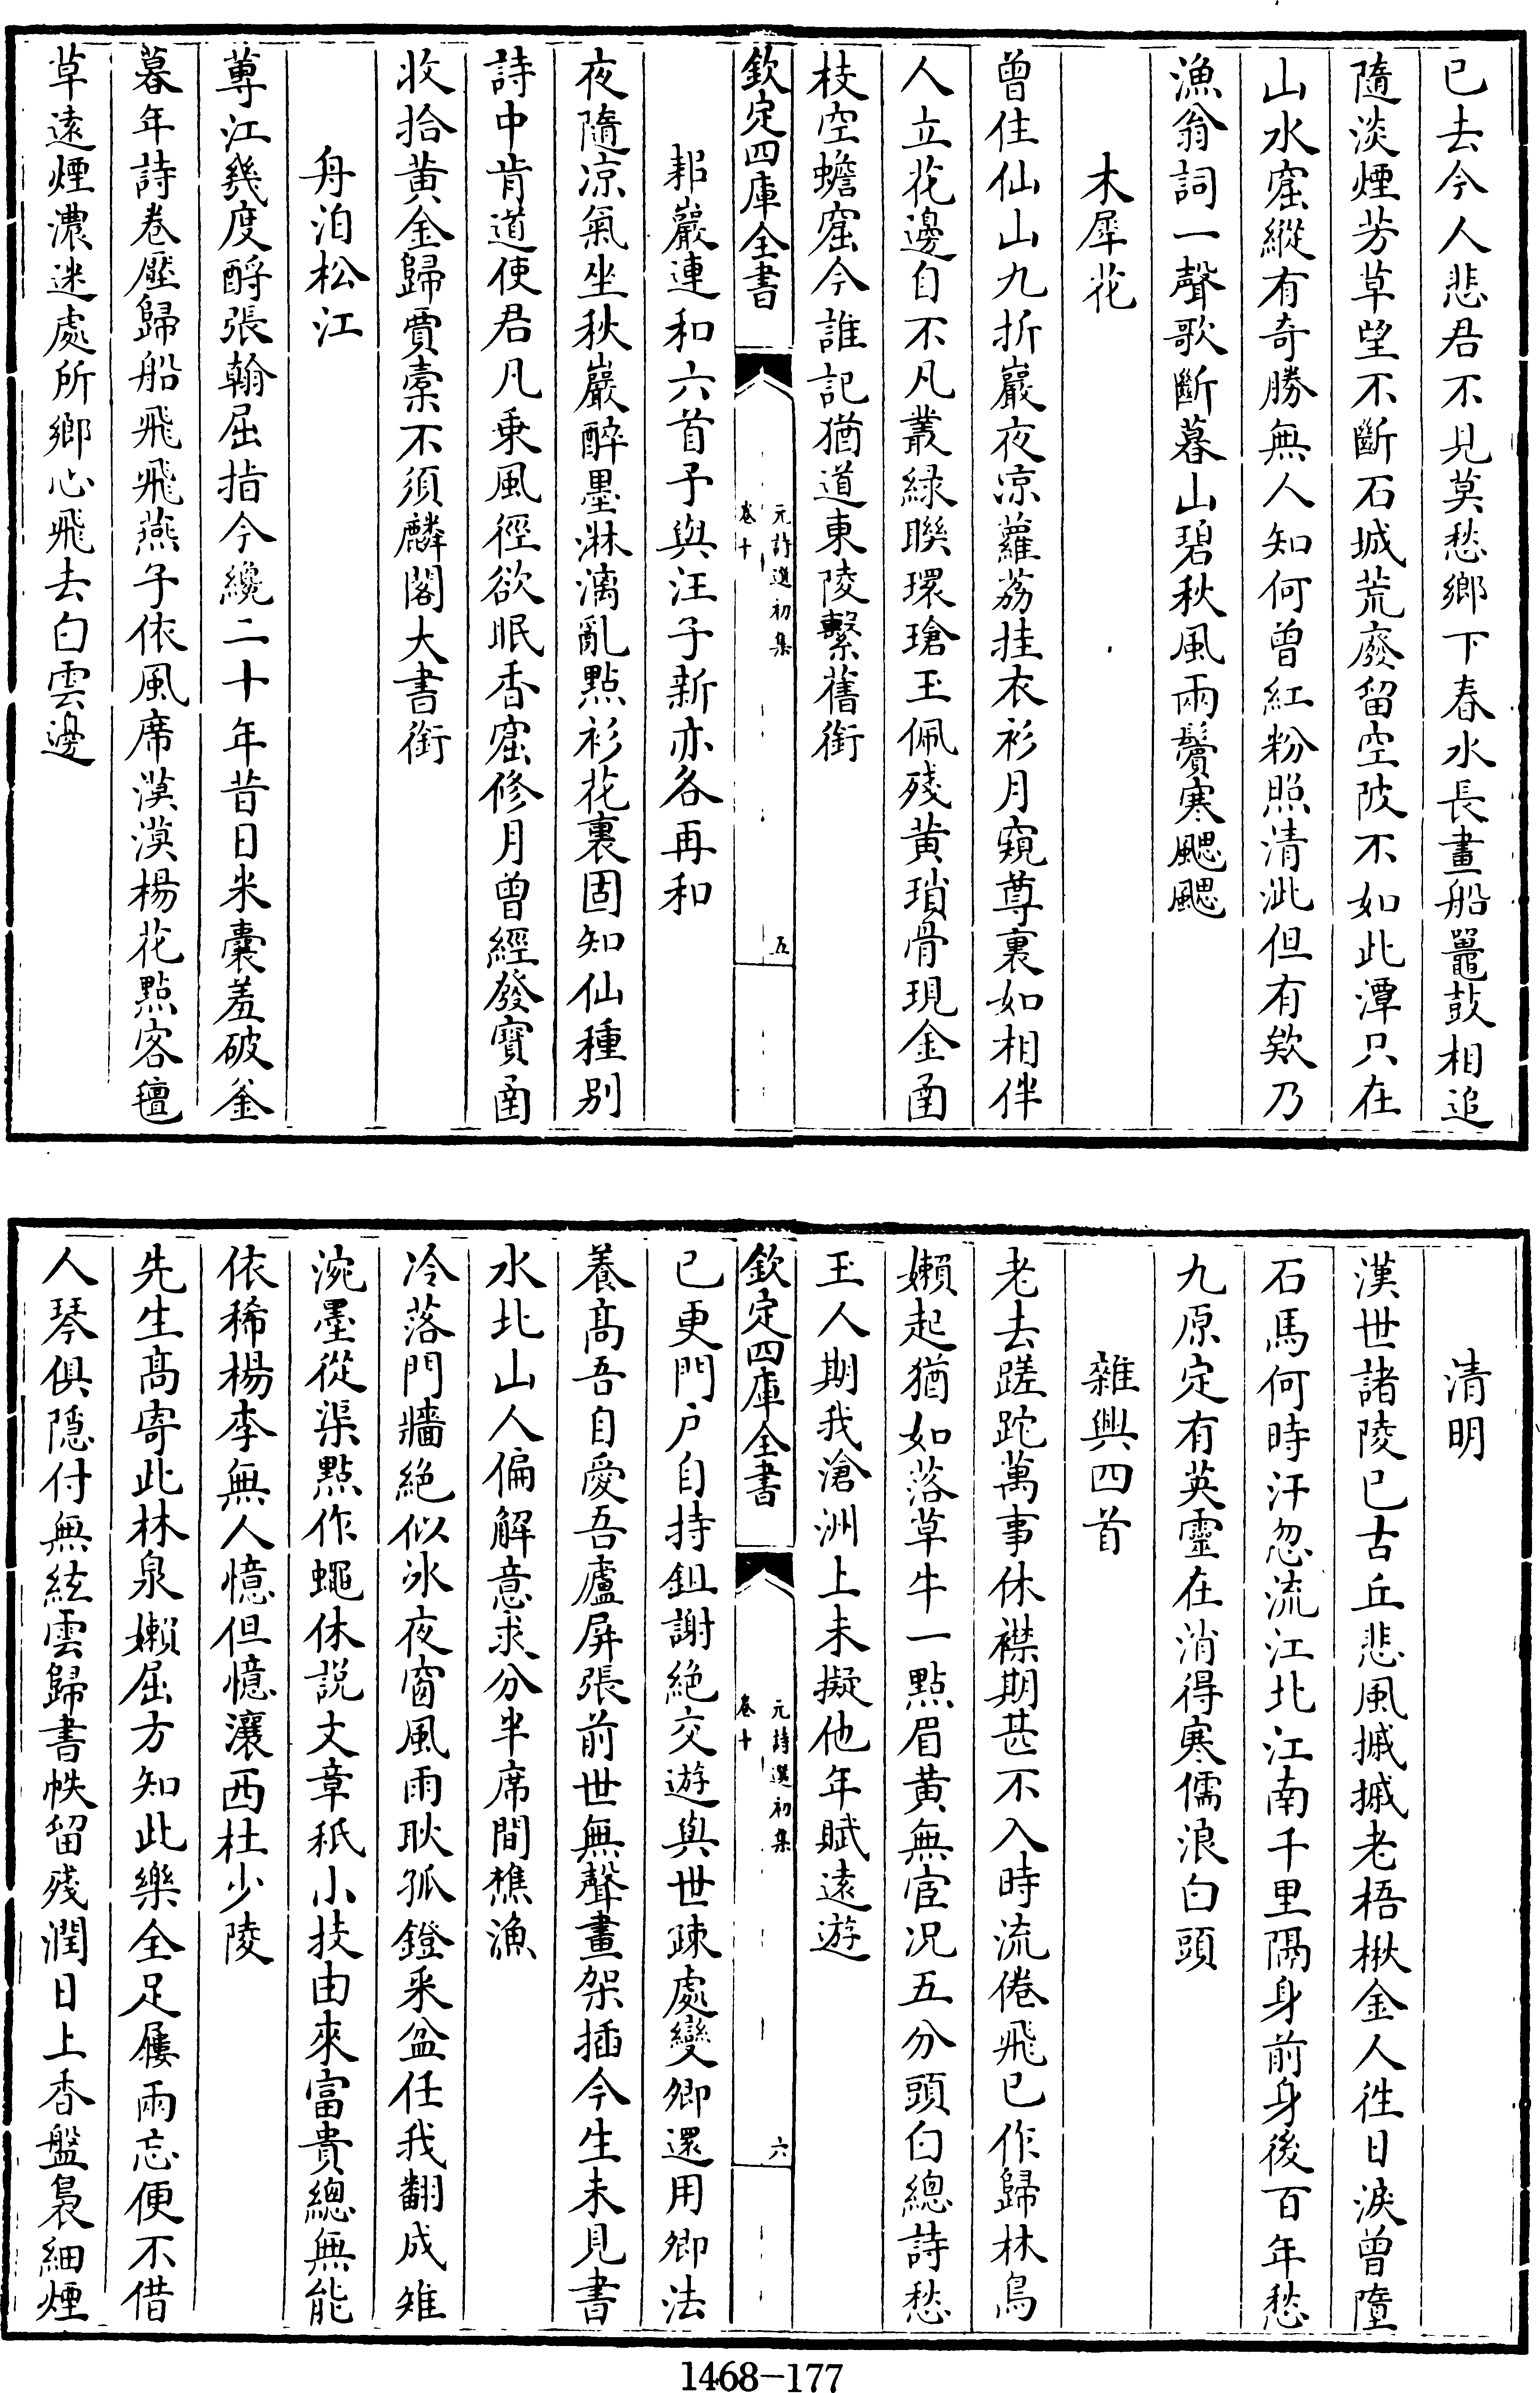 已去今人悲君不見莫愁鄉下春水長畫船鼉鼓相追
隨淡煙芳草望不斷石城荒廢留空陂不如此潭只在
山水窟縱有奇勝無人知何曾紅粉照清泚但有欸乃
漁翁詞一聲歌斷暮山碧秋風兩鬢寒颸颸
木犀花
曾住仙山九折巖夜凉蘿荔挂衣衫月窺尊裏如相伴
人立花邊自不凡叢緑聯環瑲玉佩殘黄瑣骨現金函
枝空蟾窟今誰記猶道東陵繫舊銜
欽定四庫全書
元詩選初集
卷十
五
耜巖連和六首予與汪子新亦各再和
夜隨凉氣坐秋巖醉墨淋漓亂點衫花裏固知仙種别
詩中肯道使君凡乗風徑欲眠香窟修月曾經發寳函
收拾黄金歸賈橐不須麟閣大書銜
舟泊松江
蓴江幾度酹張翰屈指今纔二十年昔日米囊羞破釜
暮年詩卷壓歸船飛飛燕子依風席漠漠楊花點客氊
草遠煙濃迷處所鄉心飛去白雲邊
清明
漢世諸陵已古丘悲風摵摵老梧楸金人徃日淚曾墮
石馬何時汗忽流江北江南千里隔身前身後百年愁
九原定有英靈在消得寒儒浪白頭
雜興四首
老去蹉跎萬事休襟期甚不入時流倦飛已作歸林鳥
嬾起猶如落草牛一點眉黄無宦况五分頭白總詩愁
玉人期我滄洲上未擬他年賦遠遊
欽定四庫全書
元詩選初集
卷十
六
已更門户自持鉏謝絶交遊與世疎處變卿還用卿法
養髙吾自愛吾廬屏張前世無聲畫架插今生未見書
水北山人偏解意求分半席間樵漁
冷落門牆絶似冰夜窗風雨耿孤鐙釆盆任我翻成雉
涴墨從渠點作蠅休説文章秖小技由來富貴總無能
依稀楊李無人憶但憶瀼西杜少陵
先生髙寄此林泉嬾屈方知此樂全足屨兩忘便不借
人琴俱隱付無絃雲歸書帙留殘潤日上香盤裊細煙
1468-177